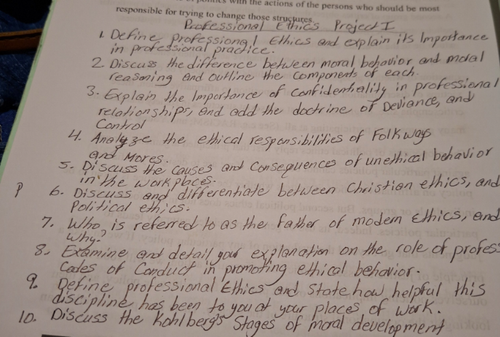 with the actions of the persons who should be most
responsible for trying to change those structures.
Professional Ethics Project I
1. Define professional Ethics and explain its Importance
in professional practice.
2. Discuss the difference between moral behavior and moral
reasoning and outline the components of each.
3. Explain the Importance of Confidentiality in professional
relationships, and add the doctrine of Deviance, and
Control
4. Analyze the ethical responsibilities of Folkways
and Mores.
5. Discuss the Causes and Consequences of unethical behavior
in the workplaces.
6. Discuss and differentiate between Christian ethics, and
Political ethics.
7. Who, is referred to as the Father of modern Ethics, and
Why?
8. Examine and detail your explanation on the role of profes
Codes of Conduct in promoting ethical behavior.
9. Define professional Ethics and State how helpful this
discipline has been to you at your places of work.
10. Discuss the Kohlberg's Stages of moral development